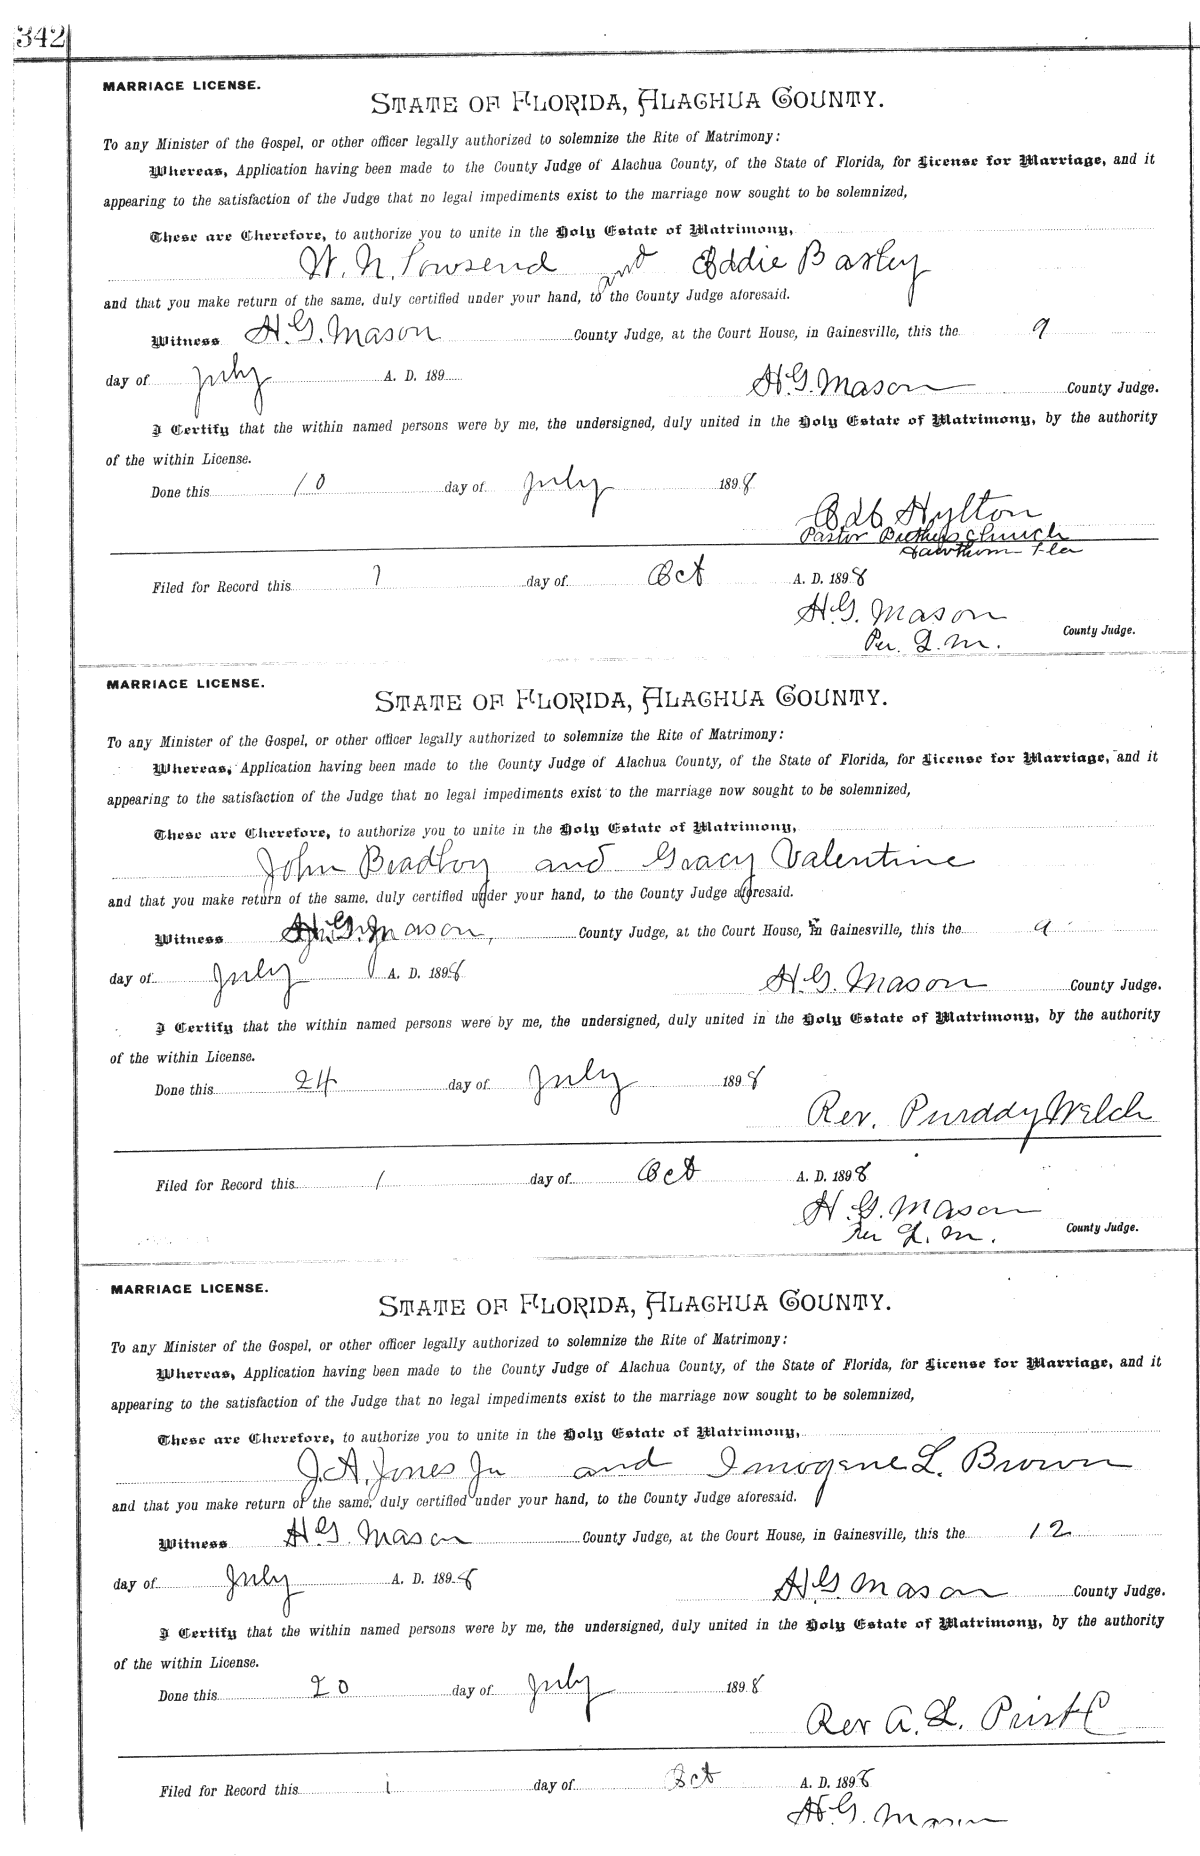 342
MARRIAGE LICENSE.
STATE OF FLORIDA, ALACHUA COUNTY.
To any Minister of the Gospel, or other officer legally authorized to solemnize the Rite of Matrimony:
Whereas, Application having been made to the County Judge of Alachua County, of the State of Florida, for License for Marriage, and it
appearing to the satisfaction of the Judge that no legal impediments exist to the marriage now sought to be solemnized,
These are Therefore, to authorize you to unite in the Holy Estate of Matrimony,
W. N. Towsend and Eddie Baxley
and that you make return of the same, duly certified under your hand, to the County Judge aforesaid.
Witness H. G. Mason County Judge, at the Court House, in Gainesville, this the 9
day of July A. D. 189
H. G. Mason County Judge.
I Certify that the within named persons were by me, the undersigned, duly united in the Holy Estate of Matrimony, by the authority
of the within License.
Done this 10 day of July 1898
Hylton
Pastor Church
Fla
Filed for Record this 1 day of Oct A. D. 1898
H. G. Mason
Per. L. M. County Judge.
MARRIAGE LICENSE.
STATE OF FLORIDA, ALACHUA COUNTY.
To any Minister of the Gospel, or other officer legally authorized to solemnize the Rite of Matrimony:
Whereas, Application having been made to the County Judge of Alachua County, of the State of Florida, for License for Marriage, and it
appearing to the satisfaction of the Judge that no legal impediments exist to the marriage now sought to be solemnized,
These are Therefore, to authorize you to unite in the Holy Estate of Matrimony,
John Bradboy and Gracy Valentine
and that you make return of the same, duly certified under your hand, to the County Judge aforesaid.
Witness H. G. Mason, County Judge, at the Court House, in Gainesville, this the 9
day of July A. D. 1898
H. G. Mason County Judge.
I Certify that the within named persons were by me, the undersigned, duly united in the Holy Estate of Matrimony, by the authority
of the within License.
Done this 24 day of July 1898
Rev. Purddy Welch
Filed for Record this 1 day of Oct A. D. 1898
H. G. Mason
Per L. M. County Judge.
MARRIAGE LICENSE.
STATE OF FLORIDA, ALACHUA COUNTY.
To any Minister of the Gospel, or other officer legally authorized to solemnize the Rite of Matrimony:
Whereas, Application having been made to the County Judge of Alachua County, of the State of Florida, for License for Marriage, and it
appearing to the satisfaction of the Judge that no legal impediments exist to the marriage now sought to be solemnized,
These are Therefore, to authorize you to unite in the Holy Estate of Matrimony,
J. A. Jones Jr and Imogene L. Brown
and that you make return of the same, duly certified under your hand, to the County Judge aforesaid.
Witness H. G. Mason County Judge, at the Court House, in Gainesville, this the 12
day of July A. D. 1898
H. G. Mason County Judge.
I Certify that the within named persons were by me, the undersigned, duly united in the Holy Estate of Matrimony, by the authority
of the within License.
Done this 20 day of July 1898
Rev A. L.
Filed for Record this 1 day of Oct A. D. 1898
H. G. Mason